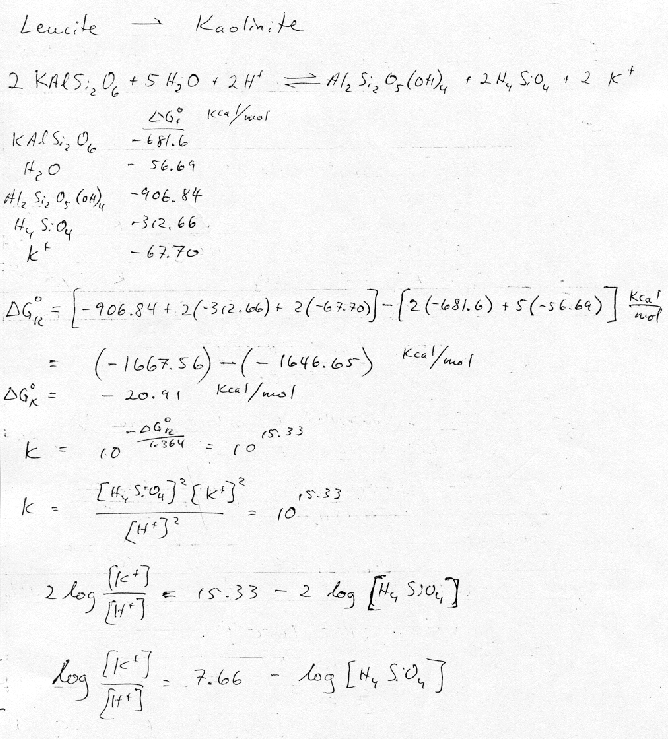 Leucite → Kaolinite
2 KAlSi₂O₆ + 5 H₂O + 2H⁺ ⇌ Al₂Si₂O₅(OH)₄ + 2H₄SiO₄ + 2 K⁺
ΔG°f Kcal/mol
KAlSi₂O₆ -681.6
H₂O - 56.69
Al₂Si₂O₅(OH)₄ -906.84
H₄SiO₄ -312.66
K⁺ -67.70
ΔG°R = [-906.84 + 2(-312.66) + 2(-67.70)] - [2(-681.6) + 5(-56.69)] Kcal/mol
= (-1667.56) - (-1646.65) Kcal/mol
ΔG°R = - 20.91 Kcal/mol
K = 10^(-ΔG°R/1.364) = 10^15.33
K = [H₄SiO₄]² [K⁺]² / [H⁺]² = 10^15.33
2 log [K⁺]/[H⁺] = 15.33 - 2 log [H₄SiO₄]
log [K⁺]/[H⁺] = 7.66 - log [H₄SiO₄]